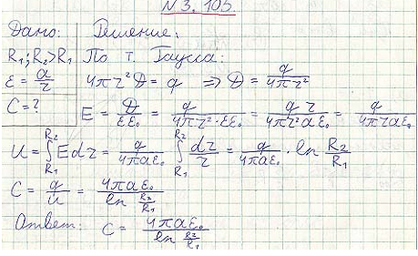 N 3.105
Дано:
R₁; R₂>R₁
ε = a/r
C=?
Решение:
По т. Гаусса:
4πr² D = q ⇒ D = q/4πr²
E = D/εε₀ = q/4πr²·εε₀ = q r/4πr² a ε₀ = q/4πr a ε₀
U = ∫_{R₁}^{R₂} E dr = q/4πaε₀ ∫_{R₁}^{R₂} dr/r = q/4πaε₀ · ln R₂/R₁
C = q/U = 4πaε₀/ln R₂/R₁
Ответ: C = 4πaε₀/ln R₂/R₁